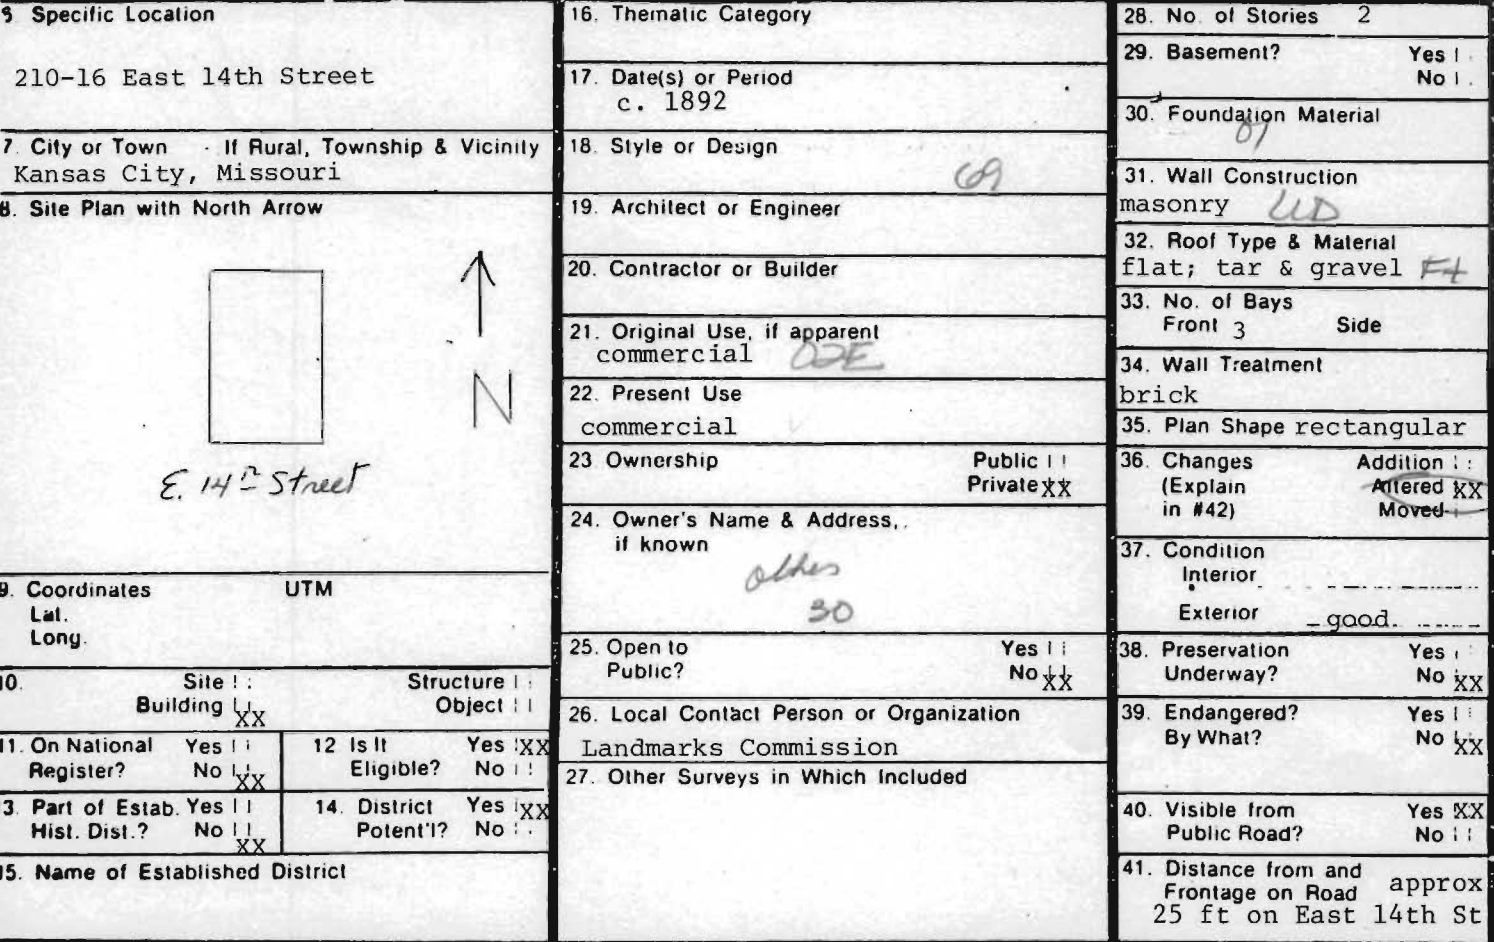 Specific Location
210-16 East 14th Street
7. City or Town If Rural, Township & Vicinity
Kansas City, Missouri
8. Site Plan with North Arrow
N
E. 14th Street
9. Coordinates UTM
Lat.
Long.
10. Site Structure
Building XX Object
11. On National Register? Yes No XX
12 Is It Eligible? Yes XX No
13. Part of Estab. Hist. Dist.? Yes No XX
14. District Potent'l? Yes XX No
15. Name of Established District
16. Thematic Category
17. Date(s) or Period
c. 1892
18. Style or Design
69
19. Architect or Engineer
20. Contractor or Builder
21. Original Use, if apparent
commercial 02E
22. Present Use
commercial
23 Ownership Public
Private XX
24. Owner's Name & Address,
if known
other
30
25. Open to Yes
Public? No XX
26. Local Contact Person or Organization
Landmarks Commission
27. Other Surveys in Which Included
28. No. of Stories 2
29. Basement? Yes
No
30. Foundation Material
31. Wall Construction
masonry
32. Roof Type & Material
flat; tar & gravel F4
33. No. of Bays
Front 3 Side
34. Wall Treatment
brick
35. Plan Shape rectangular
36. Changes Addition
(Explain Altered XX
in #42) Moved
37. Condition
Interior
Exterior good
38. Preservation Yes
Underway? No XX
39. Endangered? Yes
By What? No XX
40. Visible from Yes XX
Public Road? No
41. Distance from and
Frontage on Road approx
25 ft on East 14th St